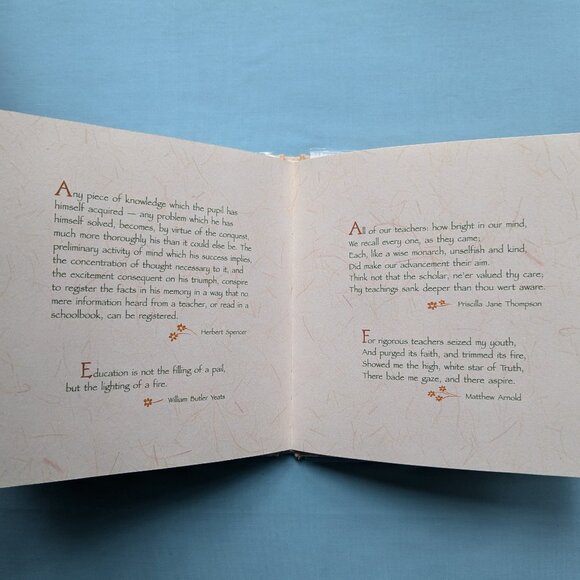 Any piece of knowledge which the pupil has
himself acquired — any problem which he has
himself solved, becomes, by virtue of the conquest,
much more thoroughly his than it could else be. The
preliminary activity of mind which his success implies,
the concentration of thought necessary to it, and
the excitement consequent on his triumph, conspire
to register the facts in his memory in a way that no
mere information heard from a teacher, or read in a
schoolbook, can be registered.
Herbert Spencer
Education is not the filling of a pail,
but the lighting of a fire.
William Butler Yeats
All of our teachers: how bright in our mind,
We recall every one, as they came;
Each, like a wise monarch, unselfish and kind,
Did make our advancement their aim.
Think not that the scholar, ne'er valued thy care;
Thy teachings sank deeper than thou wert aware.
Priscilla Jane Thompson
For rigorous teachers seized my youth,
And purged its faith, and trimmed its fire,
Showed me the high, white star of Truth,
There bade me gaze, and there aspire.
Matthew Arnold